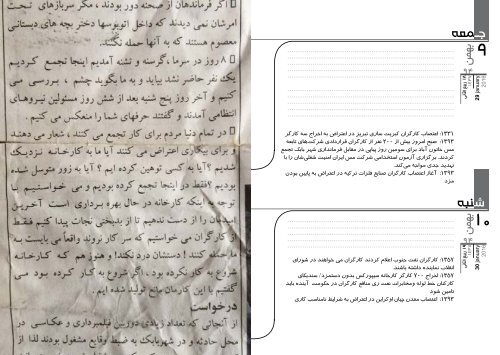 جمعه
۹
بهمن
29 January
۱۳۳۱: اعتصاب کارگران کبریت سازی تبریز در اعتراض به اخراج سه کارگر
۱۳۹۳: صبح امروز بیش از ۲۰۰ نفر از کارگران قراردادی شرکت‌های تابعه
مس خاتون آباد برای سومین روز پیاپی در مقابل فرمانداری شهر بابک تجمع
کردند. برگزاری آزمون استخدامی شرکت مس ایران امنیت شغلی‌شان را با
تهدید جدی مواجه می‌کند.
۱۳۹۳: آغاز اعتصاب کارگران صنایع فلزات ترکیه در اعتراض به پایین بودن
مزد
شنبه
۱۰
بهمن
30 January
۱۳۵۷: کارگران نفت جنوب اعلام کردند کارگران می خواهند در شورای
انقلاب نماینده داشته باشند.
۱۳۵۷: اخراج ۷۰۰ کارگر کارخانه سیپورکس بدون دستمزد/ سندیکای
کارگران خط لوله ومخابرات نفت ری منافع کارگران در حکومت آینده باید
تامین شود
۱۳۹۳: اعتصاب معدن چیان اوکراین در اعتراض به شرایط نامناسب کاری
اگر فرماندهان از صحنه دور بودند، مگر سربازهای تحت
امرشان نمی دیدند که داخل اتوبوسها دختر بچه های دبستانی
معصوم هستند که به آنها حمله نکنند.
۸ روز در سرما، گرسنه و تشنه آمدیم اینجا تجمع کردیم
یک نفر حاضر نشد بیاید و به ما بگوید چشم ، بررسی می
کنیم و آخر روز پنج شنبه بعد از شش روز مسئولین نیروهای
انتظامی آمدند و گفتند حرفهای شما را منعکس می کنیم .
در تمام دنیا مردم برای کار تجمع می کنند، شعار می دهند
و برای بیکاری اعتراض می کنند آیا ما به کارخانه نزدیک
شدیم ؟آیا به کسی توهین کرده ایم ؟ آیا به زور متوسل شده
بودیم ؟فقط در اینجا تجمع کرده بودیم و می خواستیم با
توجه به اینکه کارخانه در حال بهره برداری است آخرین
امیدمان را از دست ندهیم تا از بدبختی نجات پیدا کنیم فقط
از کارگران می خواستیم که سر کار نروند واقعا می بایست به
ما حمله کنند! دستشان درد نکند! و هنوز هم که کارخانه
شروع به کار نکرده بود . اگر شروع به کار کرده بود می
گفتیم با این کارمان مانع تولید شده ایم .
درخواست
از آنجائی که تعداد زیادی دوربین فیلمبرداری و عکاسی در
محل حادثه و در شهربابک به ضبط وقایع مشغول بودند لذا از